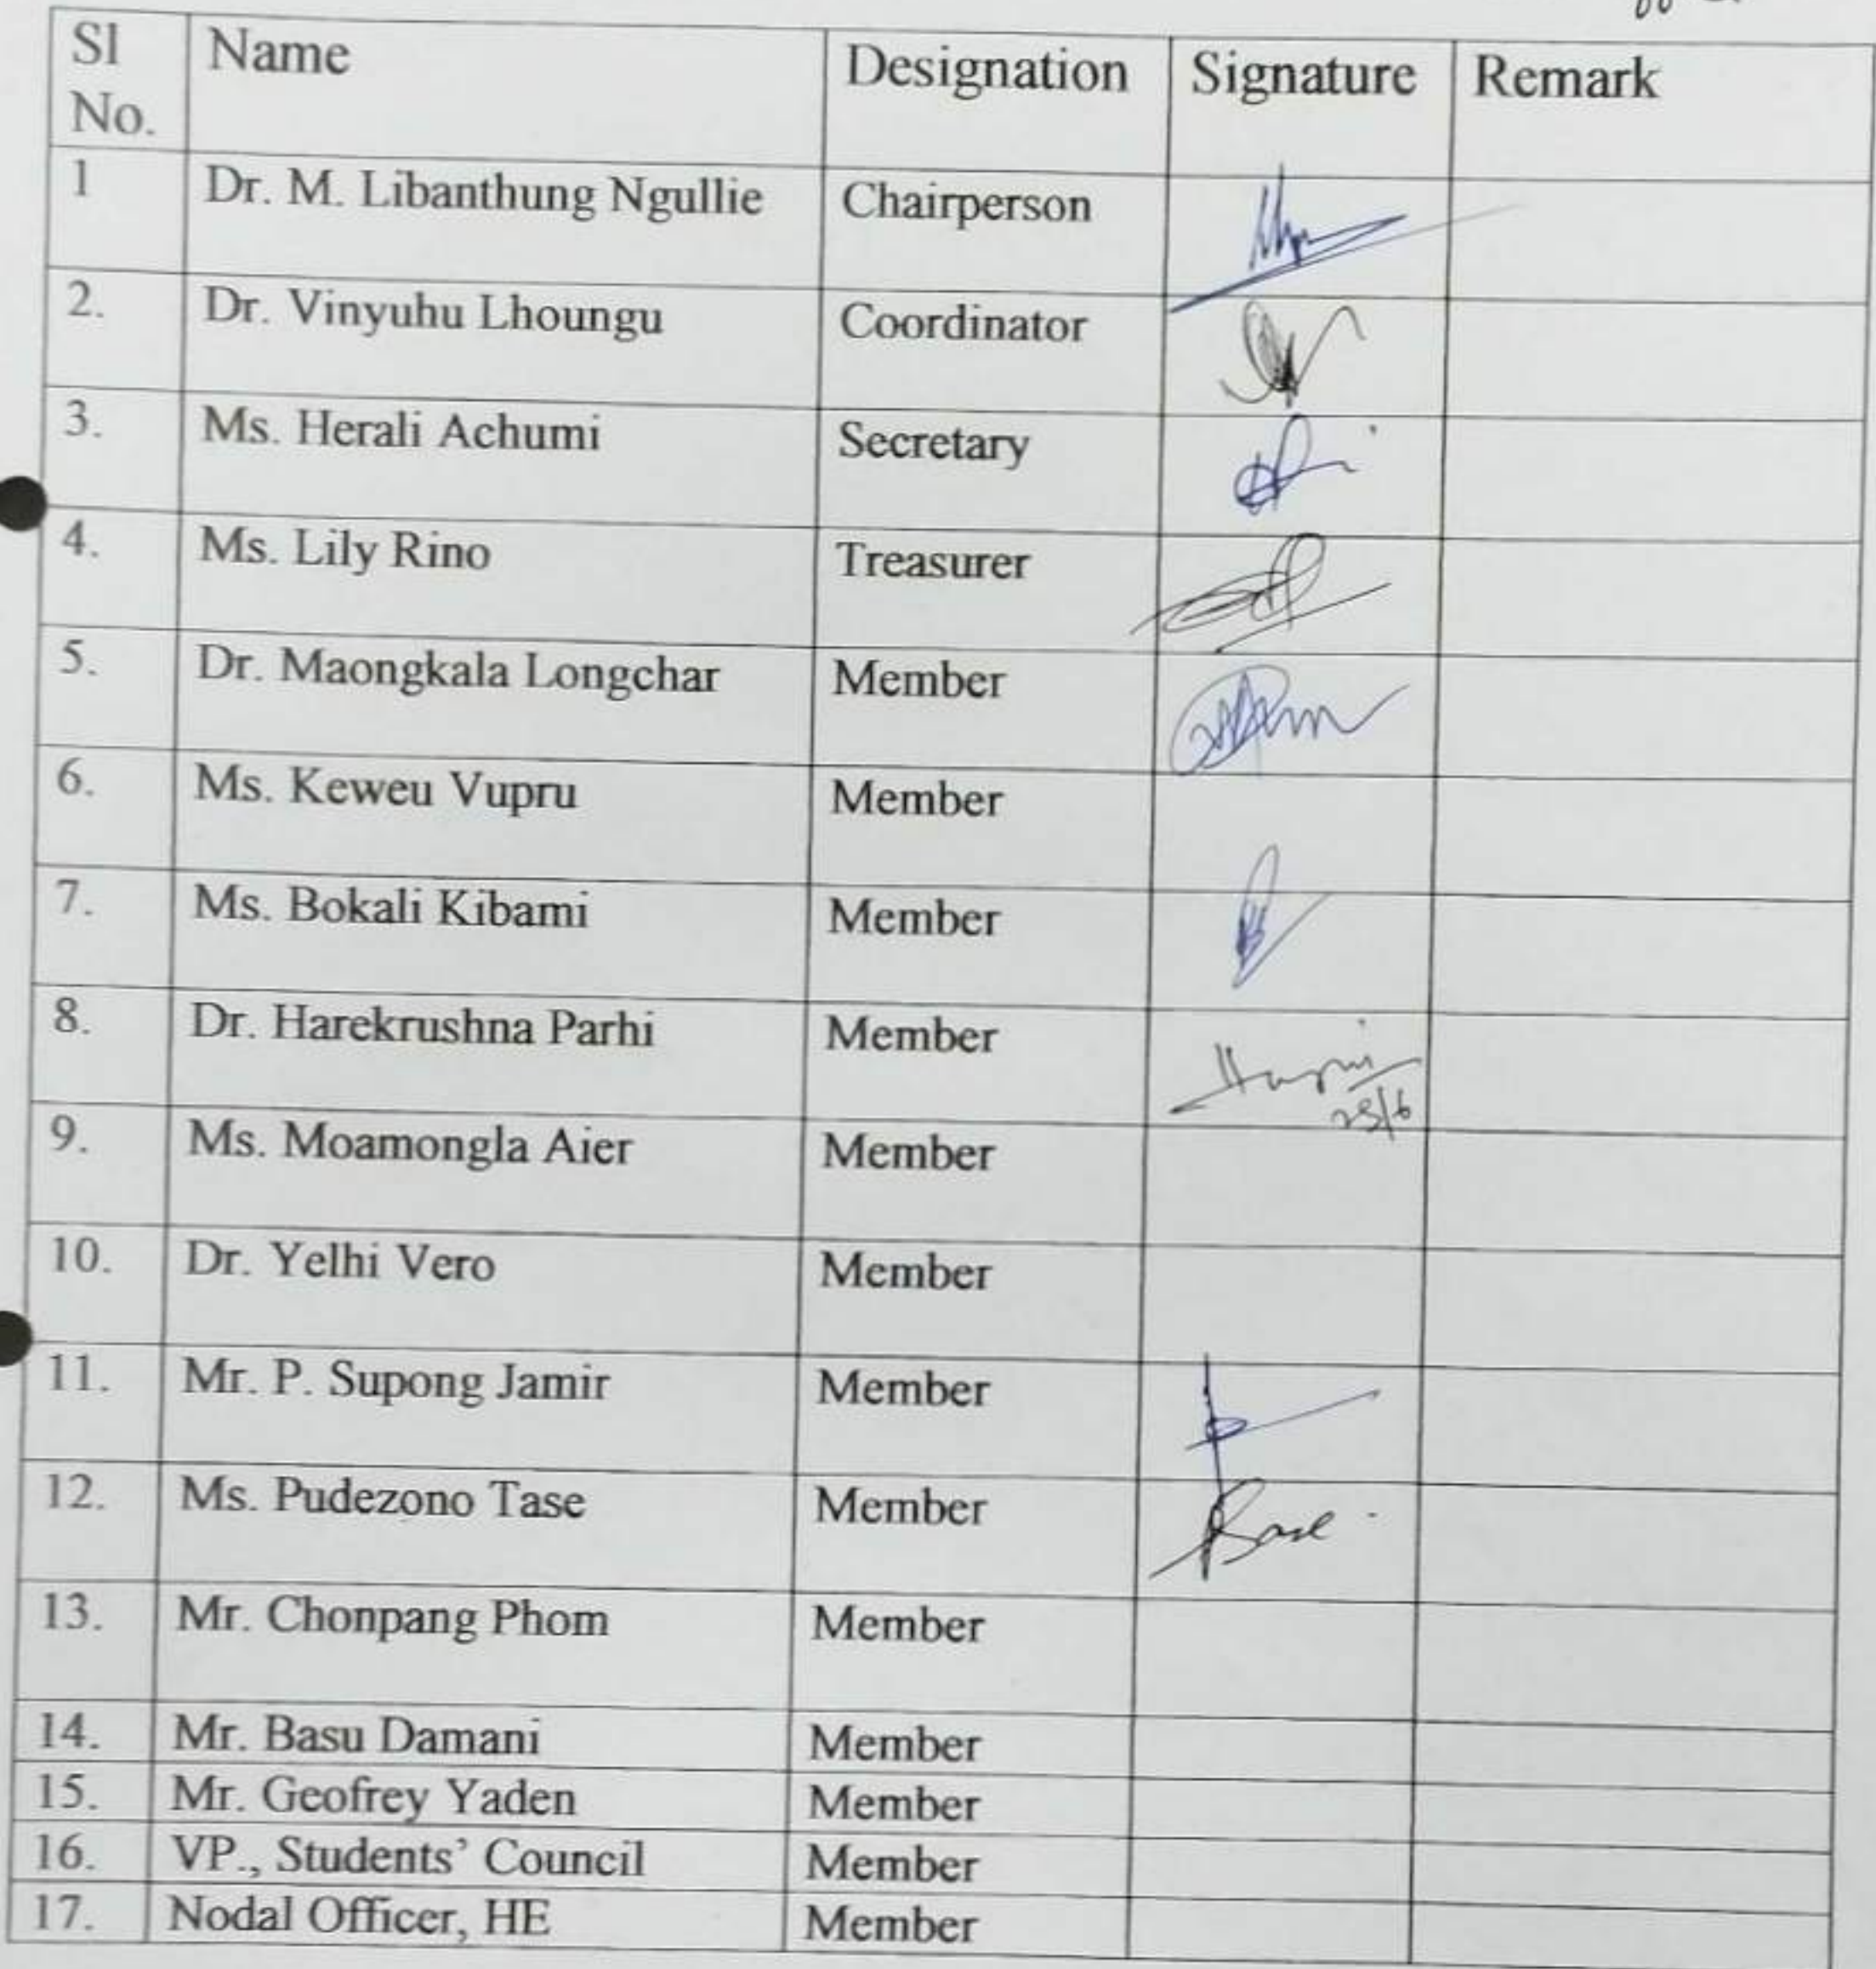 Sl No. Name Designation Signature Remark
1 Dr. M. Libanthung Ngullie Chairperson
2. Dr. Vinyuhu Lhoungu Coordinator
3. Ms. Herali Achumi Secretary
4. Ms. Lily Rino Treasurer
5. Dr. Maongkala Longchar Member
6. Ms. Keweu Vupru Member
7. Ms. Bokali Kibami Member
8. Dr. Harekrushna Parhi Member
9. Ms. Moamongla Aier Member
10. Dr. Yelhi Vero Member
11. Mr. P. Supong Jamir Member
12. Ms. Pudezono Tase Member
13. Mr. Chonpang Phom Member
14. Mr. Basu Damani Member
15. Mr. Geofrey Yaden Member
16. VP., Students’ Council Member
17. Nodal Officer, HE Member